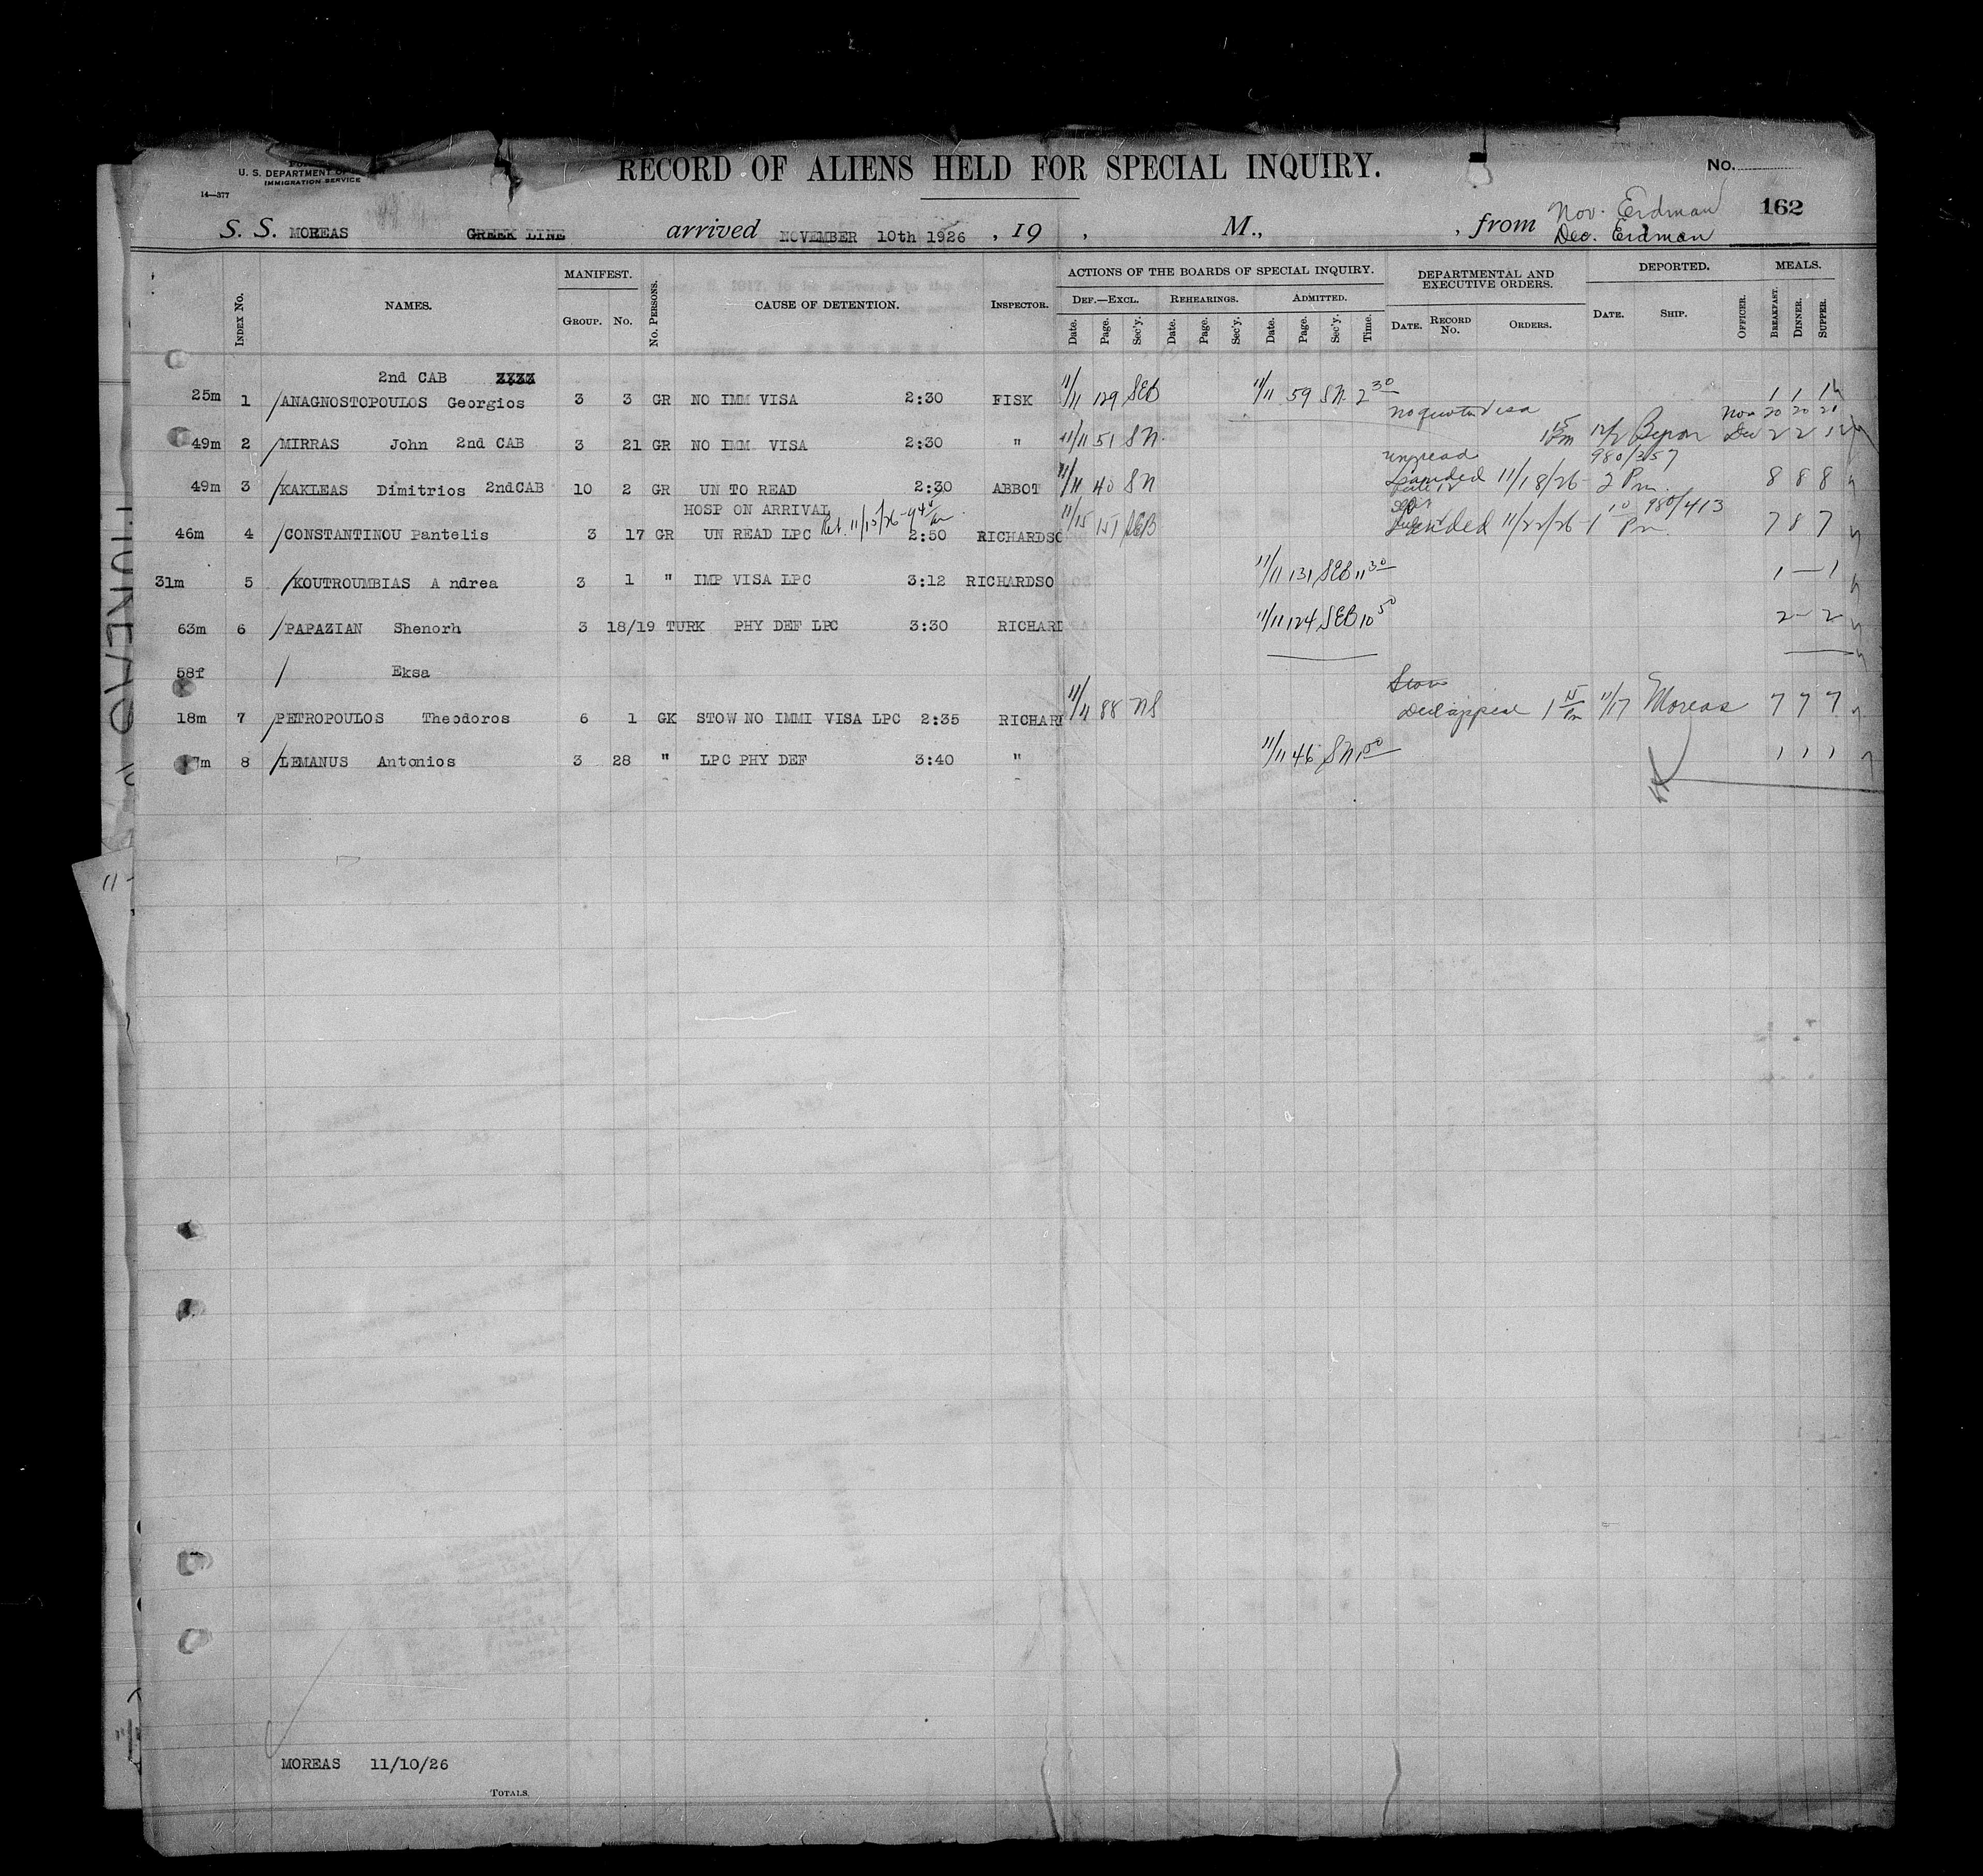 U. S. DEPARTMENT OF
IMMIGRATION SERVICE
14—377
RECORD OF ALIENS HELD FOR SPECIAL INQUIRY.
No.
162
Nov. Erdman
S. S. MOREAS GREEK LINE arrived NOVEMBER 10th 1926 , 19 , M., , from Dec. Erdman
INDEX No. NAMES. MANIFEST. GROUP. No. No. PERSONS. CAUSE OF DETENTION. INSPECTOR. ACTIONS OF THE BOARDS OF SPECIAL INQUIRY. DEF.—EXCL. Date. Page. Sec'y. REHEARINGS. Date. Page. Sec'y. ADMITTED. Date. Page. Sec'y. Time. DEPARTMENTAL AND EXECUTIVE ORDERS. DATE. RECORD No. ORDERS. DEPORTED. DATE. SHIP. OFFICER. MEALS. BREAKFAST. DINNER. SUPPER.
2nd CAB
25m 1 /ANAGNOSTOPOULOS Georgios 3 3 GR NO IMM VISA 2:30 FISK 11/11 129 SEB 11/11 59 SN 2 30 1 1 1
no quota visa Nov 20 20 21
49m 2 /MIRRAS John 2nd CAB 3 21 GR NO IMM VISA 2:30 " 11/11 51 SN. 1 15 Pm 12/2 Byron Dec 2 2 1
unread 980/357
49m 3 /KAKLEAS Dimitrios 2ndCAB 10 2 GR UN TO READ 2:30 ABBOT 11/11 40 SN Landed 11/18/26- 2 Pm. 8 8 8
HOSP ON ARRIVAL Ret. 11/15/26- 9 45 am 980/413
46m 4 /CONSTANTINOU Pantelis 3 17 GR UN READ LPC 2:50 RICHARDSO 11/15 151 SEB Landed 11/22/26- 1 10 Pm. 7 8 7
31m 5 /KOUTROUMBIAS A ndrea 3 1 " IMP VISA LPC 3:12 RICHARDSO 11/11 131 SEB 11 30 1 — 1
63m 6 /PAPAZIAN Shenorh 3 18/19 TURK PHY DEF LPC 3:30 RICHARD 11/11 124 SEB 10 50 2 — 2
58f / Eksa
Stow
18m 7 /PETROPOULOS Theodoros 6 1 GK STOW NO IMMI VISA LPC 2:35 RICHAR 11/11 88 NS Decl appeal 1 15 Pm 11/17 Moreas 7 7 7
7m 8 /LEMANUS Antonios 3 28 " LPC PHY DEF 3:40 " 11/11 46 SN 1 00 1 1 1
MOREAS 11/10/26
TOTALS.